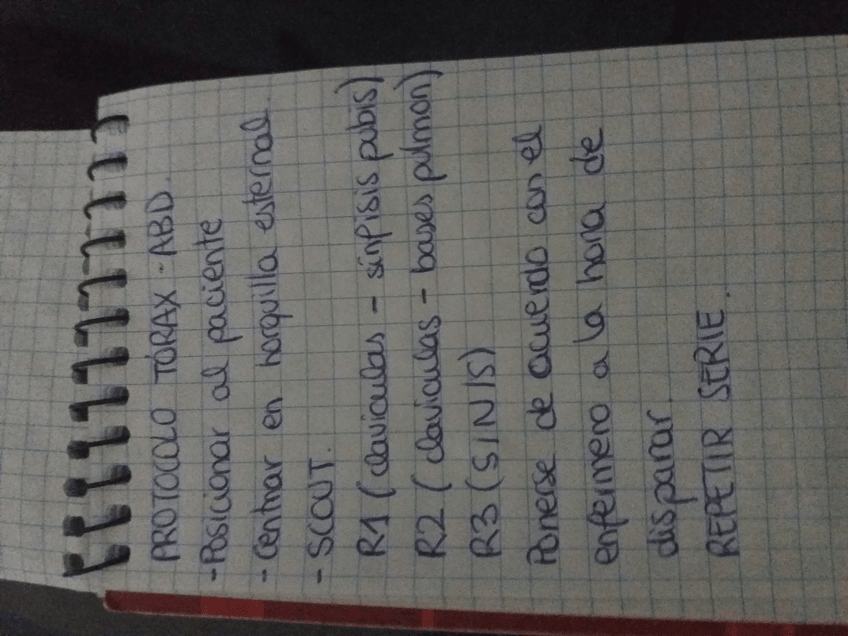 PROTOCOLO TÓRAX-ABD.
- Posicionar al paciente
- Centrar en horquilla esternal.
- SCOUT.
R1 (claviculas - sínpisis pubis)
R2 (claviculas - bases pulmon)
R3 (SINIS)
Ponerse de acuerdo con el
enfermero a la hora de
disparar.
REPETIR SERIE.